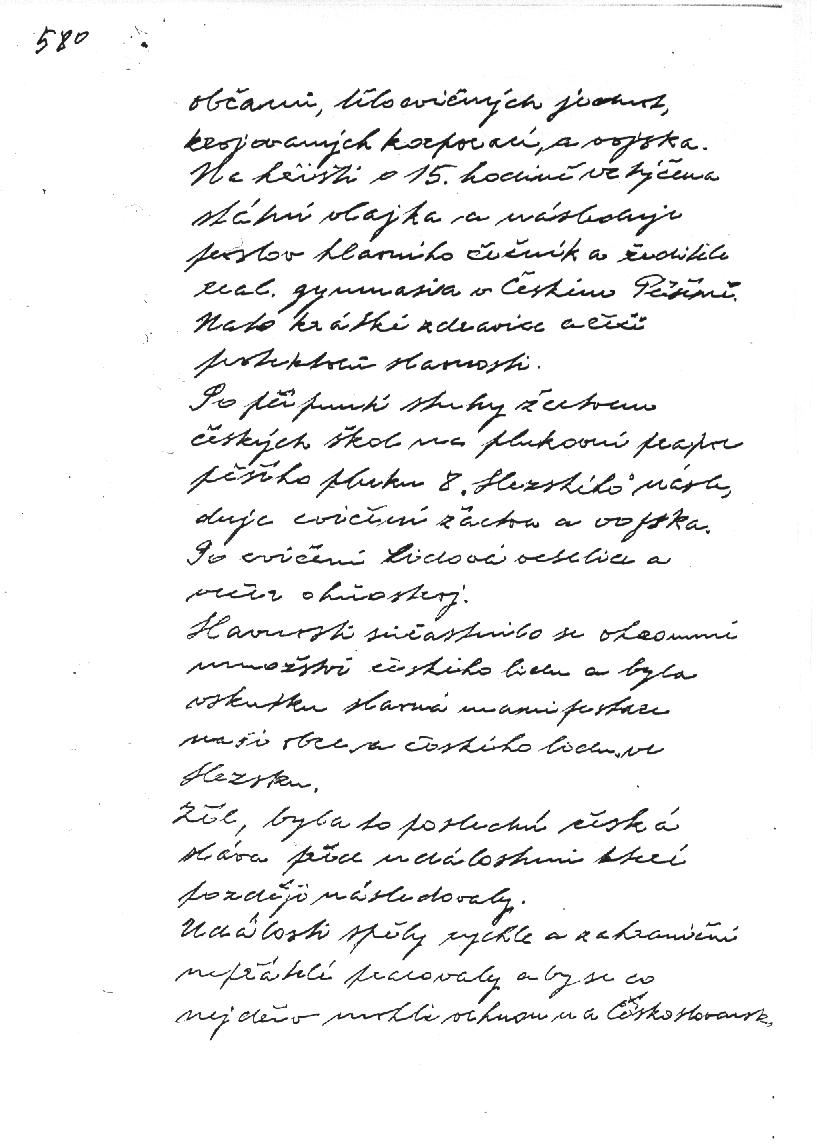 580
občanů, tělocvičných jednot,
krojovaných korporací, a vojska.
Na hřišti o 15. hodině vztýčena
státní vlajka a následuje
proslov hlavního řečníka ředitele
real. gymnasia v Českém Těšíně.
Nato krátké zdravice a čin
protektorů slavnosti.
Po připnutí stuhy žactvem
českých škol na plukovní prapor
pěšího pluku 8. "Slezského" násle,
duje cvičení žactva a vojska.
Po cvičení Lidová veselice a
večer ohňostroj.
Slavnosti súčastnilo se ohromné
množství českého lidu a byla
vskutku slavná manifestace
naší obce, a českého lidu, ve
Slezsku.
Žel, byla to poslední česká
sláva před událostmi které
později následovaly.
Události spěly rychle a zahraniční
nepřátelé pracovaly aby se co
nejdřív mohli vrhnou na Československ,